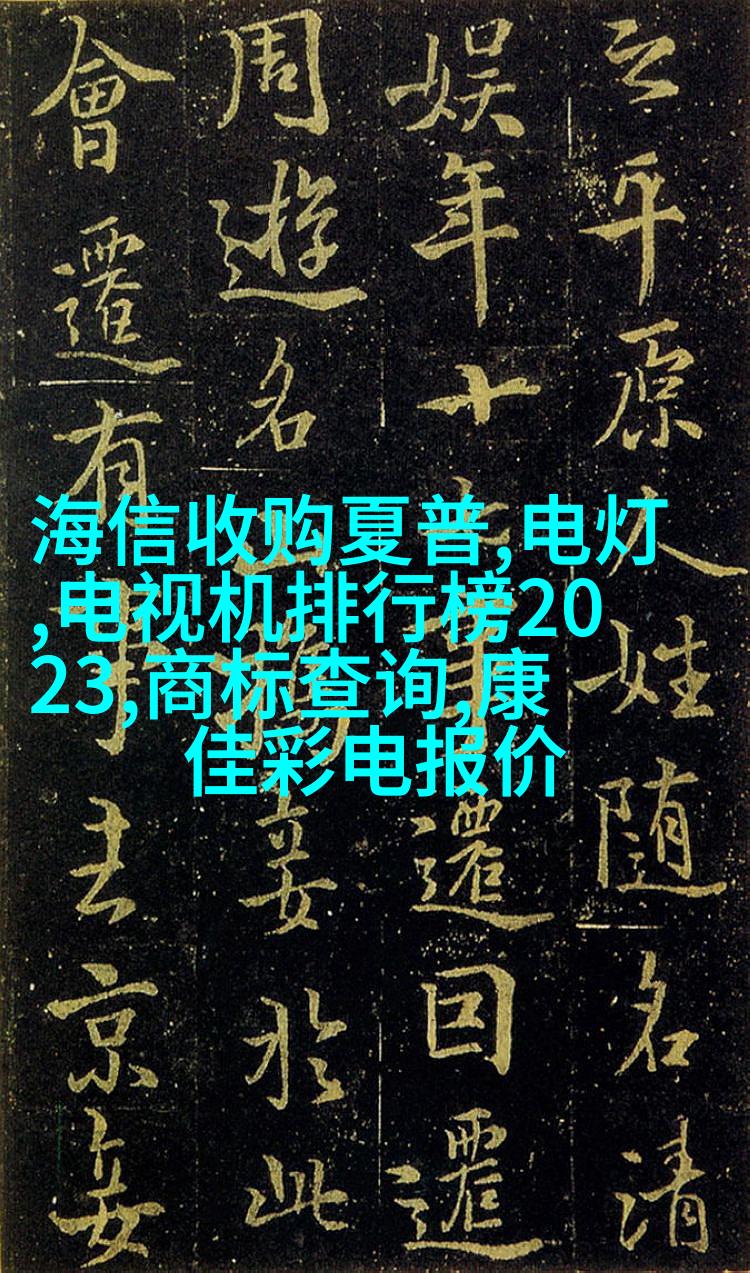 海信收购夏普,电灯
,电视机排行榜20
23,商标查询,康
佳彩电报价
之平原人姓随名清
娱年十遷回遷
周遊名妾於此
會遷有事去京妾